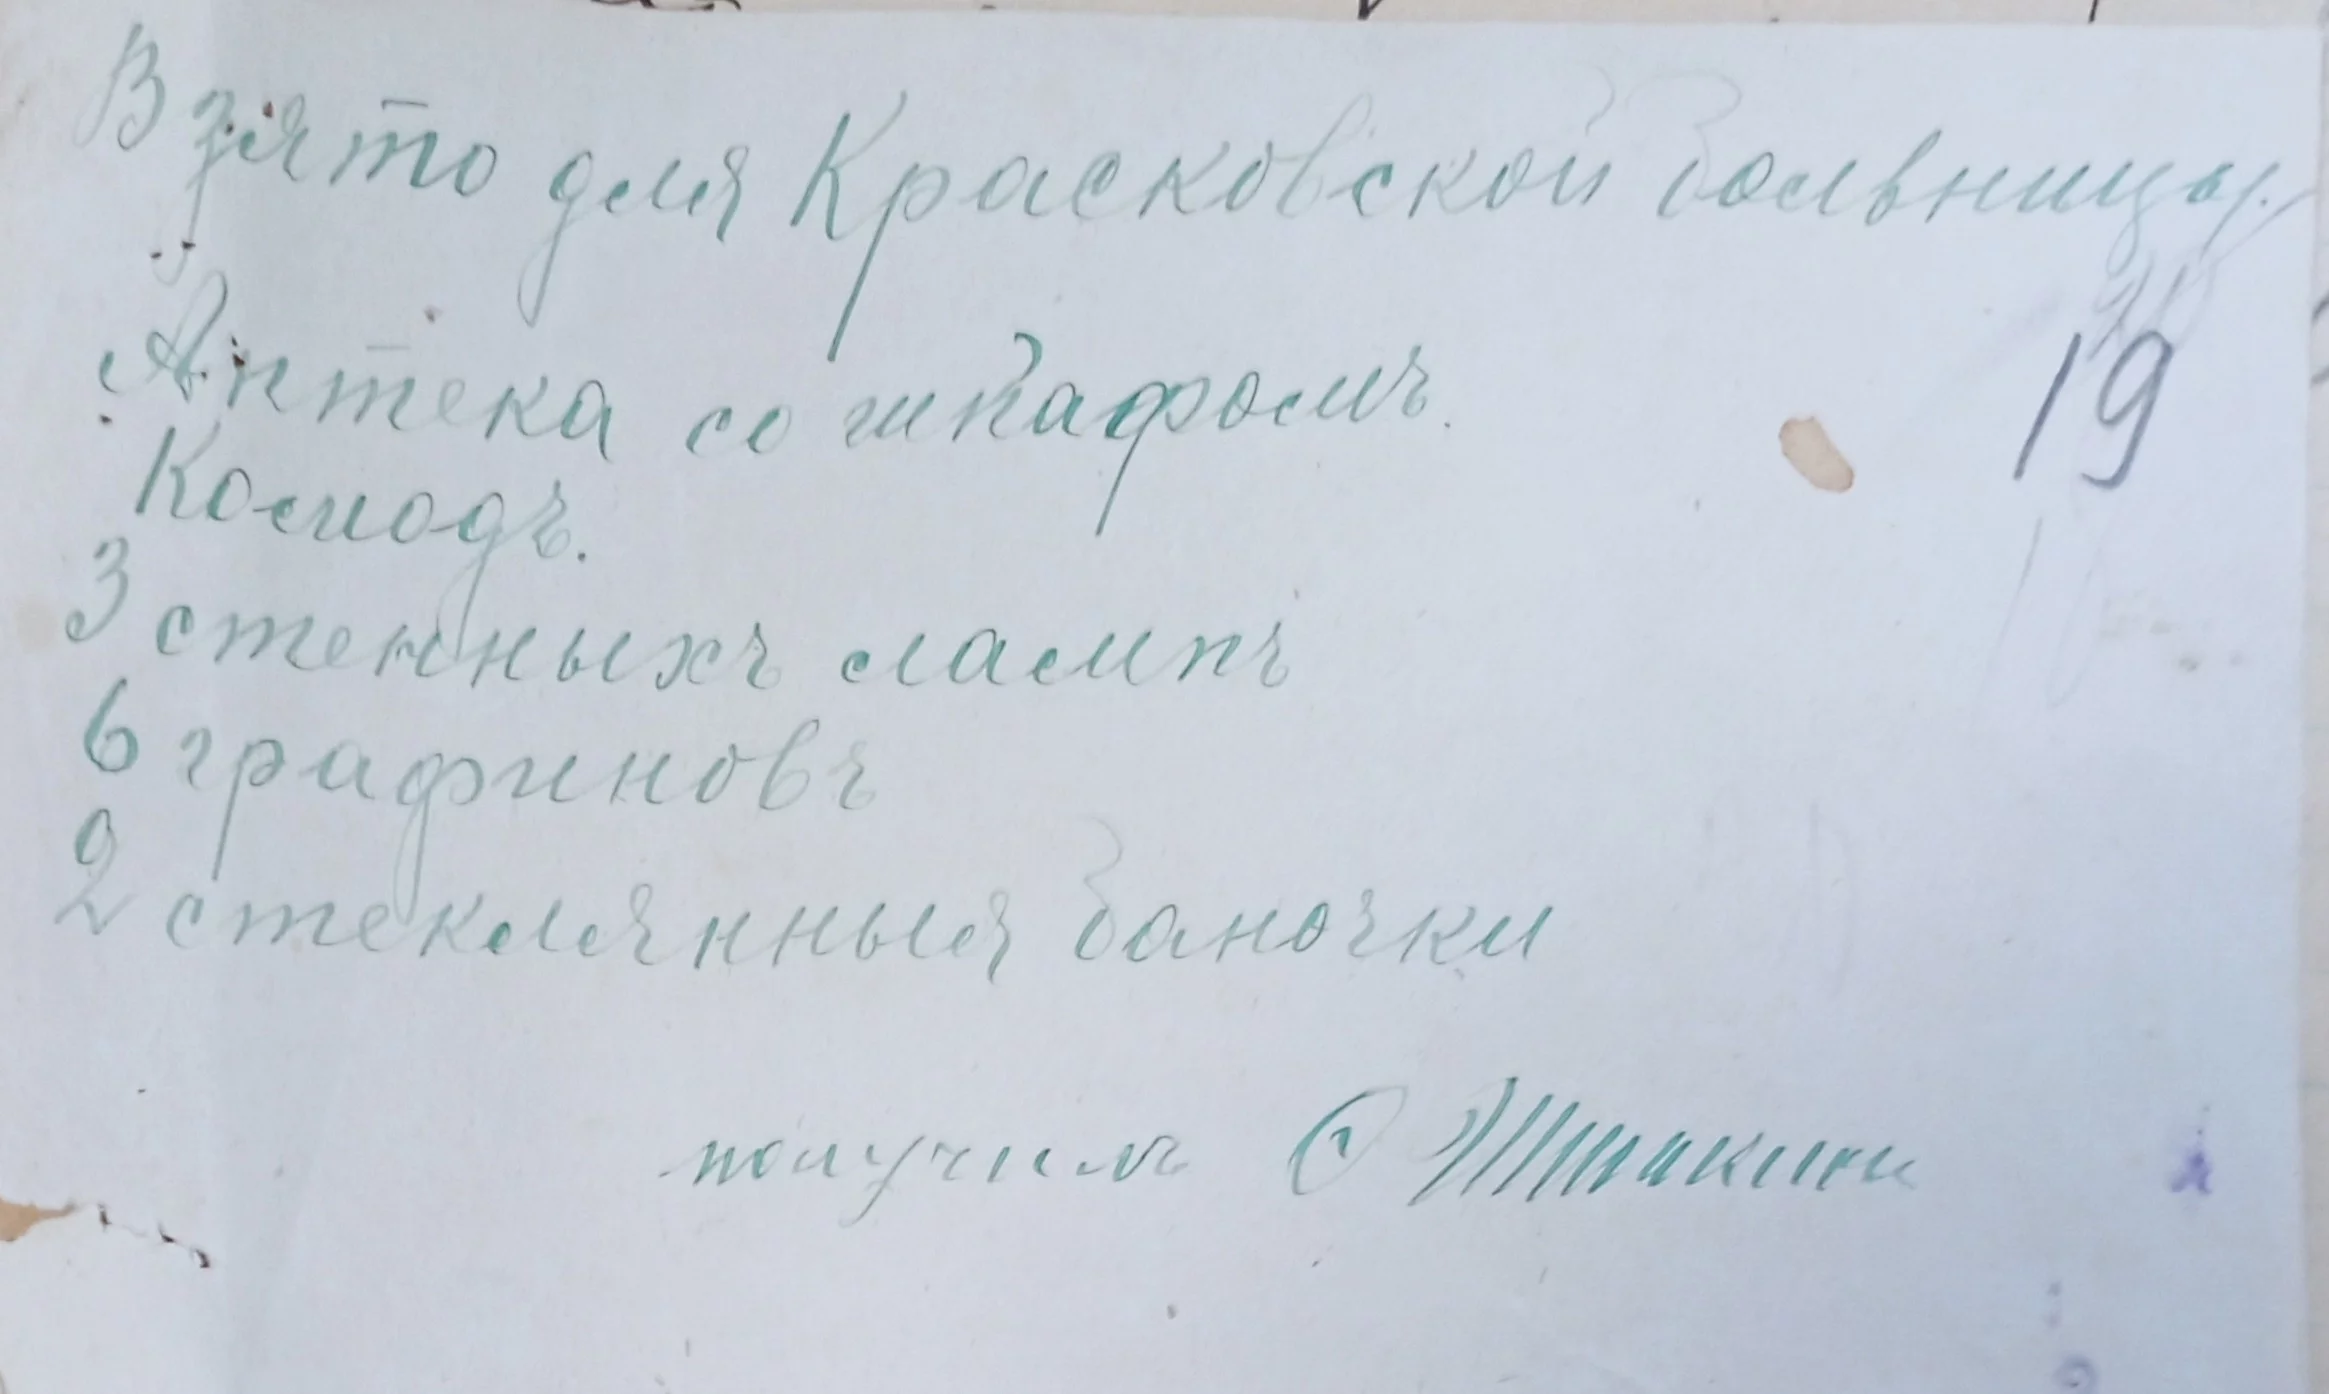 Взято для Красковской больницы.
19
Аптека со шкафомъ.
Комодъ.
3 стенныхъ лампъ
6 графиновъ
2 стеклянныя баночки
получилъ